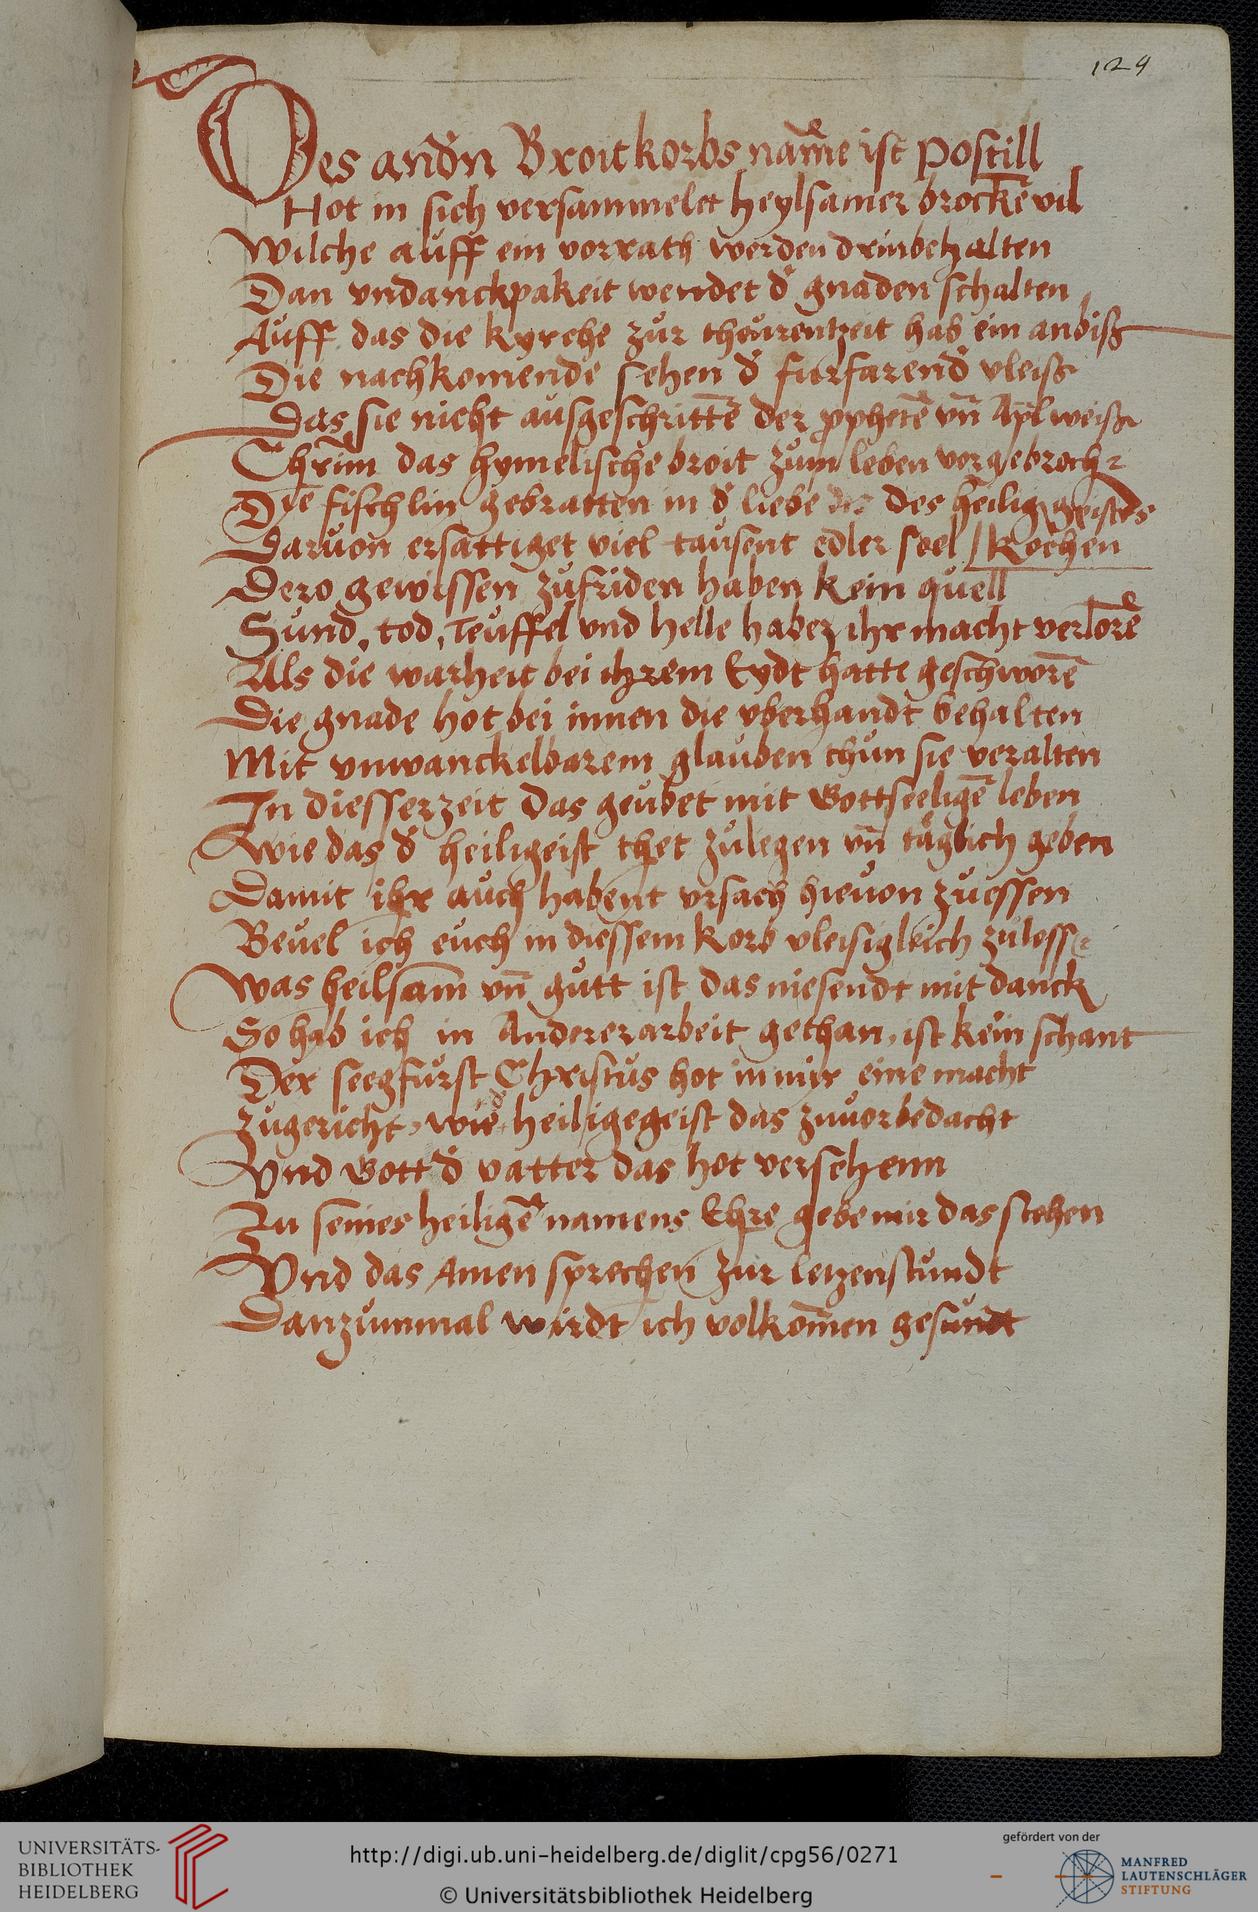 129
Des andn̄ Broitkorbs nam̄e ist Postill
Hot in sich versammelet heylsamer brockē vil
Wilche auff ein vorrath werden drinbehalten
Dan vndanckpakeit wendet d' gnaden schalten
Auff das die kyrche zur theurentzeit hab ein anbiß
Die nachkomende sehen d' furfarend' vleiß
Das sie nicht ausgeschrittē der pphetē vn̄ Apl weiß
Chrim̄ das hymelische broit zum leben vorgebroch
Dye fischlin gebratten in d' liebe des heilig geistes
Daruon ersattiget viel tausent edler seel / kochen
Dero gewissen zufriden haben kein quell
Sund, tod, Teuffel vnd helle haben ihr macht verlorē
Als die warheit bei ihrem Eydt hatte geschworē
Die gnade hot bei innen die vberhandt behalten
Mit vnwanckelbarem glauben thun sie veralten
In diesserzeit das geubet mit Gottseeligē leben
Wie das d' heiligeist thet zulegen vn̄ täglich geben
Damit ihr auch habent vrsach hieuon zuessen
Beuel ich euch in diessem korb vleisigleich zuless
Was heilsam vn̄ gutt ist das niesendt mit danck
So hab ich in Andererarbeit gethan, ist kein schant
Der seegfurst Christus hot in mir eine macht
Zugericht, wie d' heiligegeist das zuuorbedacht
Vnd Gott d' vatter das hot versehenn
Zu seines heiligē namens Ehre gebe mir das stehen
Vnd das Amen sprechen zur letzenstundt
Danzummal wirdt ich volkom̄en gesundt
UNIVERSITÄTS-
BIBLIOTHEK
HEIDELBERG
http://digi.ub.uni-heidelberg.de/diglit/cpg56/0271
© Universitätsbibliothek Heidelberg
gefördert von der
MANFRED
LAUTENSCHLÄGER
STIFTUNG